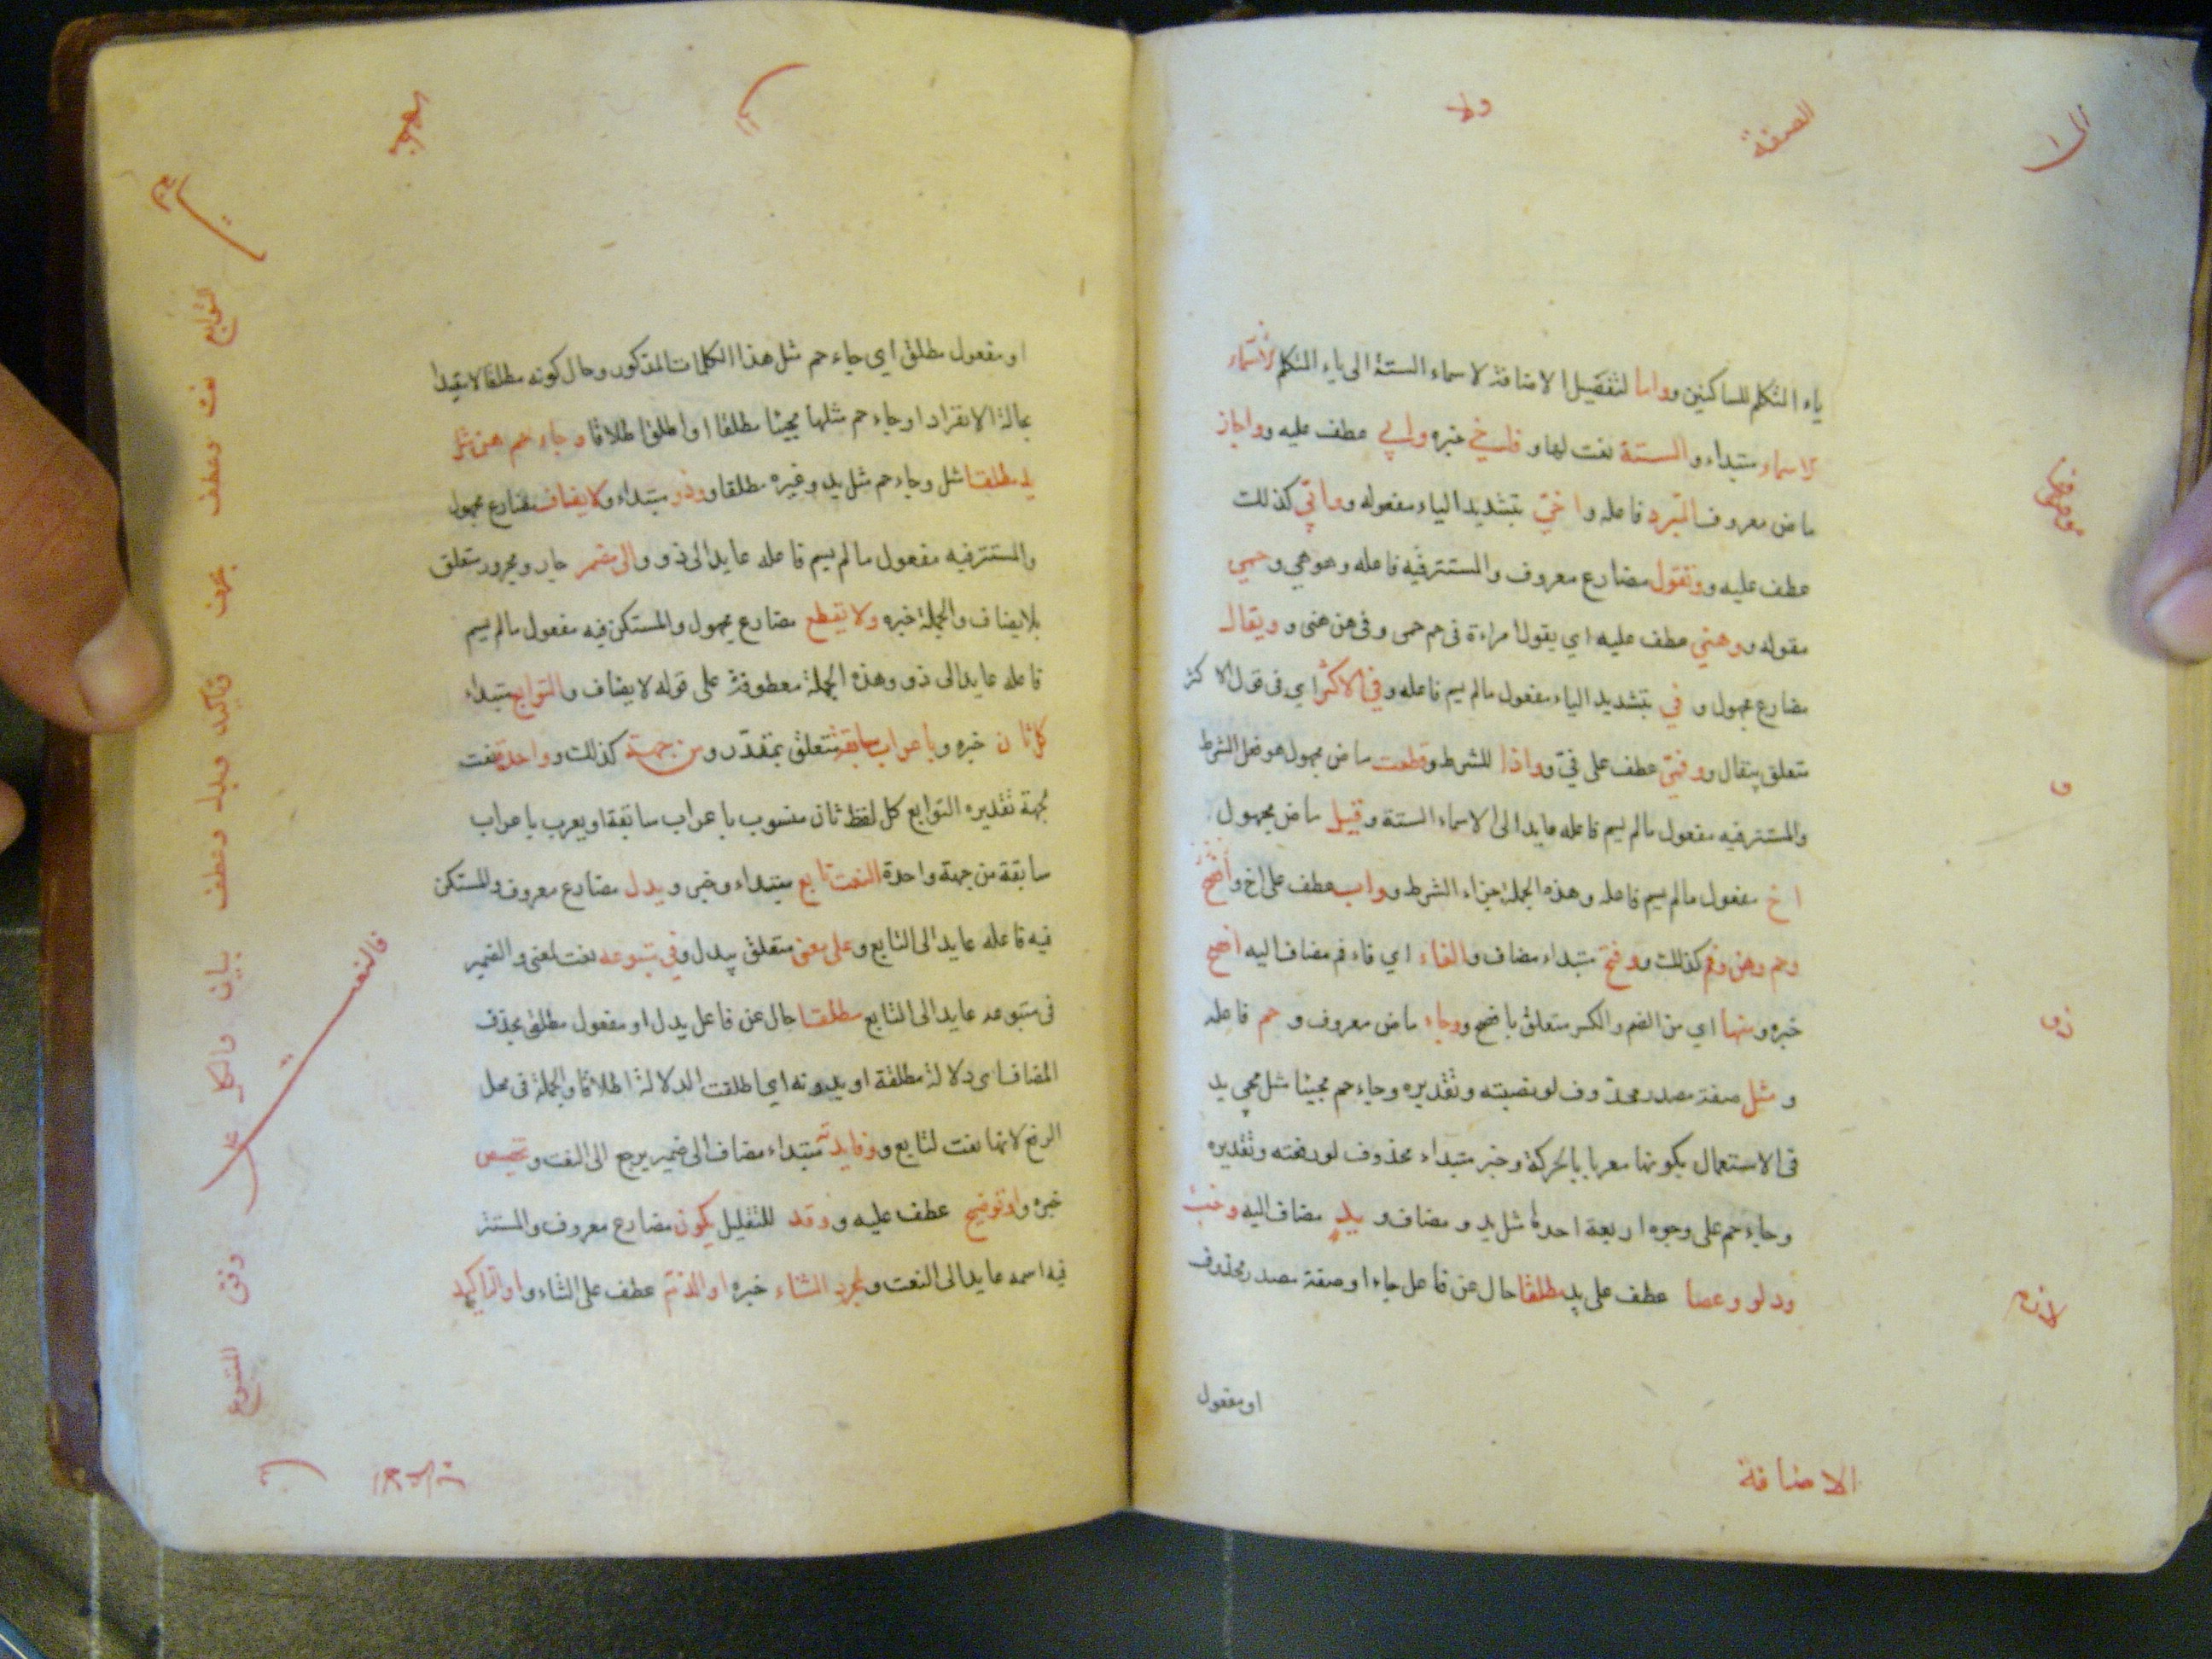 ياء المتكلم للساكنين وواما لتفصيل الاضافة لاسماء الستة الى ياء المتكلم لاسماء
لاسماء مبتداء والستة نعت لها و فاخي خبره وابي عطف عليه وواجاز
ماض معروف المبرد فاعله واخيّ بتشديد الياء مفعوله ووابيّ كذلك
عطف عليه ووتقول مضارع معروف والمستتر فيه فاعله وهو هي وحمي
مقوله ووهني عطف عليه اي يقول امراءة في حم حمى وفى هن هنى وويقال
مضارع مجهول و في بتشديد الياء مفعول مالم يسم فاعله وفي الاكثر اي فى قول الاكثر
متعلق بيقال ووفمي عطف على فيّ وواذا للشرط وقطعت ماض مجهول هو فعل الشرط
والمستتر فيه مفعول مالم يسم فاعله عايد الى الاسماء الستة وقيل ماض مجهول
اخ مفعول مالم يسم فاعله وهذه الجملة جزاء الشرط وواب عطف على اخ
وحم وهن وفم كذلك ووفتح مبتداء مضاف والفاء اي فاء فم مضاف اليه افصح
خبره ومنهما اي من الضم والكسر متعلق بافصح ووجاء ماض معروف و حم فاعله
و مثل صفة مصدر محذوف لو نصبته وتقديره وجاء حم مجيئا مثل مجي يد
فى الاستعمال بكونها معربا بالحركة وخبر مبتداء محذوف لو رفعته وتقديره
وجاء حم على وجوه اربعة احدها مثل يد و مضاف و يد مضاف اليه وخبء
ودلو وعصا عطف على يد مطلقا حال عن فاعل جاء او صفة مصدر محذوف
او مفعول
الصفة
ولا
ذو
لانه
الاضافة
او مفعول مطلق اي جاء حم مثل هذا الكلمات المذكور وحال كونه مطلقا لا مقيدا
بحالة الانفراد او جاء حم مثلها مجيئا مطلقا او اطلق اطلاقا وجاء هن مثل
يد مطلقا مثل وجاء حم مثل يد وغيره مطلقا ووذو مبتداء ولا يضاف مضارع مجهول
والمستتر فيه مفعول مالم يسم فاعله عايد الى ذو والى مضمر جار ومجرور متعلق
بلا يضاف والجملة خبره ولا يقطع مضارع مجهول والمستكن فيه مفعول مالم يسم
فاعله عايد الى ذو وهذه الجملة معطوفة على قوله لا يضاف والتوابع مبتداء
كل ثان خبره وباعراب سابقة متعلق بمقدّر ومن جهة كذلك وواحدة نعت
لجهة تقديره التوابع كل لفظ ثان منسوب باعراب سابقة او يعرب باعراب
سابقة من جهة واحدة النعت تابع مبتداء وخبر ويدل مضارع معروف والمستكن
فيه فاعله عايد الى التابع وعلى معنى متعلق بيدل وفي متبوعه نعت لمعنى والضمير
فى متبوعه عايد الى التابع مطلقا حال عن فاعل يدل او مفعول مطلق بحذف
المضاف اى دلالة مطلقة او بدونه اي اطلقت الدلالة اطلاقا والجملة فى محل
الرفع لانها نعت لتابع ووفايدته مبتداء مضاف الى ضمير يرجع الى النعت وتخصيص
خبره واو توضيح عطف عليه ووقد للتقليل يكون مضارع معروف والمستتر
فيه اسمه عايد الى النعت ولمجرد الثناء خبره او الذم عطف على الثناء واو التاكيد
التوابع نعت وعطف بحرف تاكيد وبدل وعطف بيان والكل وفق المتبوع
فالنعت